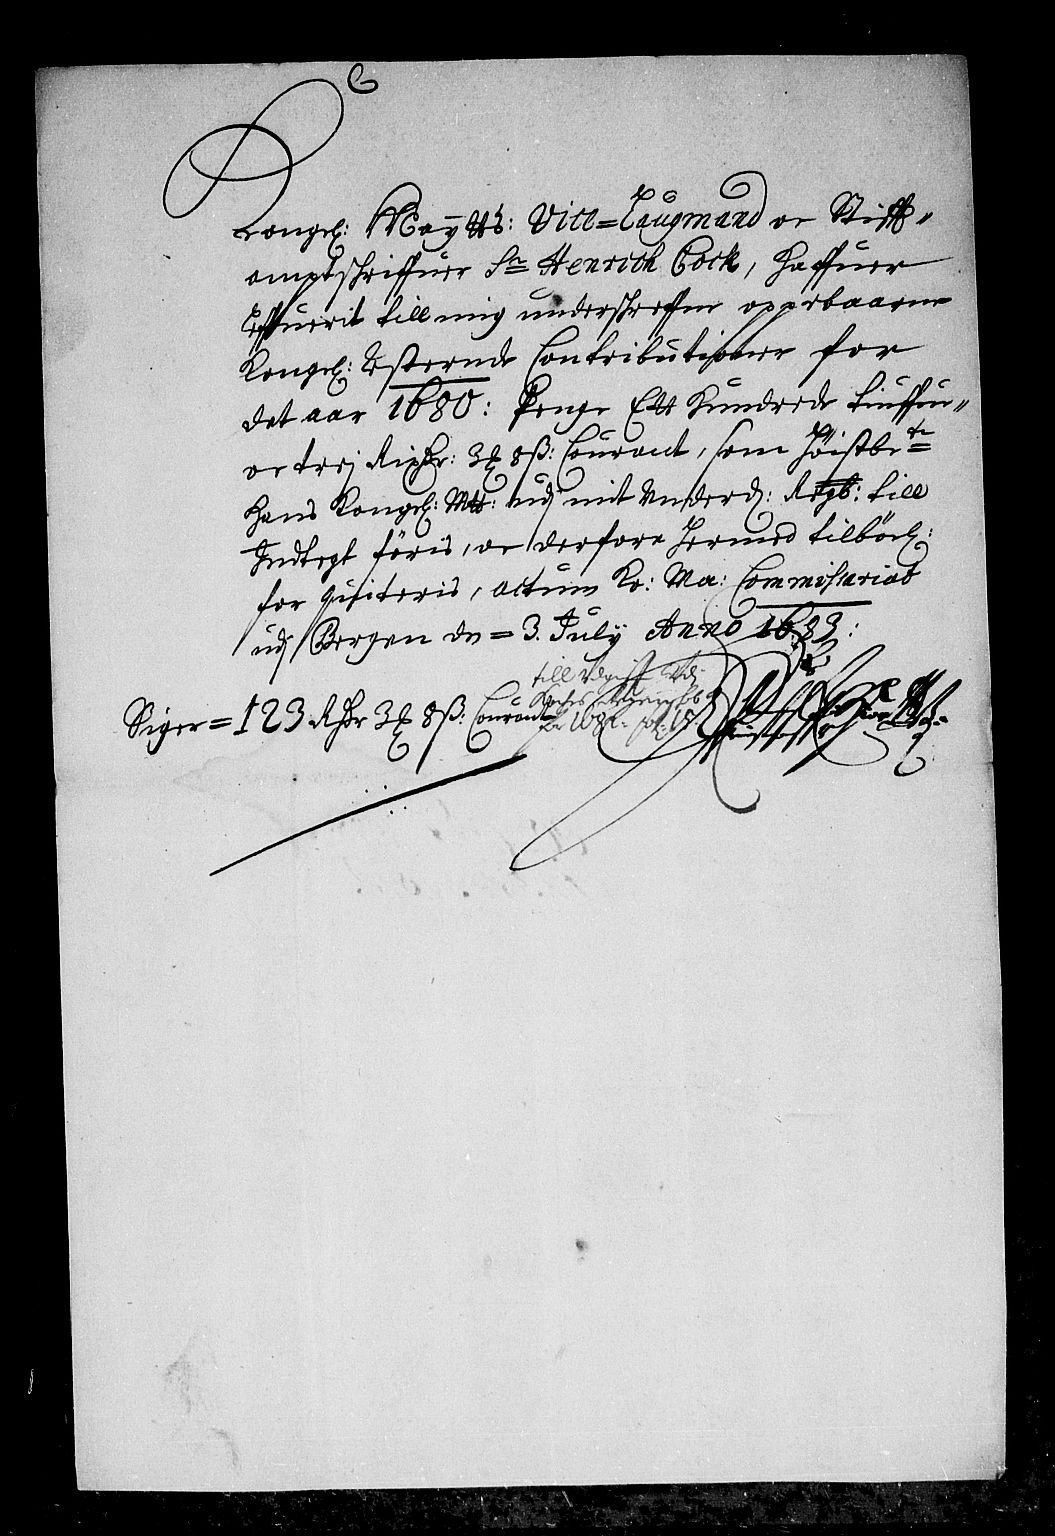 Kongel: Maÿtts: Vice=Laugmand oc Stifft-
amptschriffuer Sr Henrich Cock, haffuer
leffuerit till mig underschreffne oppebaarne
Kongel: resterende Contributioner for
det aar 1680: Penge Ett hundrede tiuffue
oc trej Rixdr: 3 ₻ 8 ß: Courant, som Höistbete
Hans Kongel: Mtt: udj mit Underd: Regb: till
Indtegt föris, oc derfore hermed tilbörl:
for quiteris, actum Ko: Ma: Commissariat
udj Bergen de= 3. July Anno 1683:
Siger= 123 Rdr 3 ₻ 8 ß: Courant
till Udgifft Udj